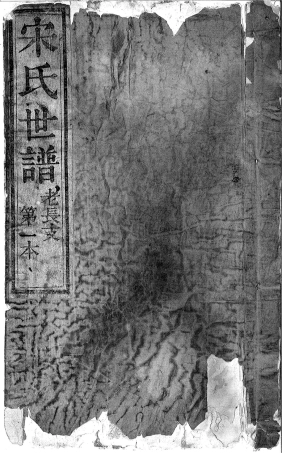 宋氏世譜
老長支
第一本